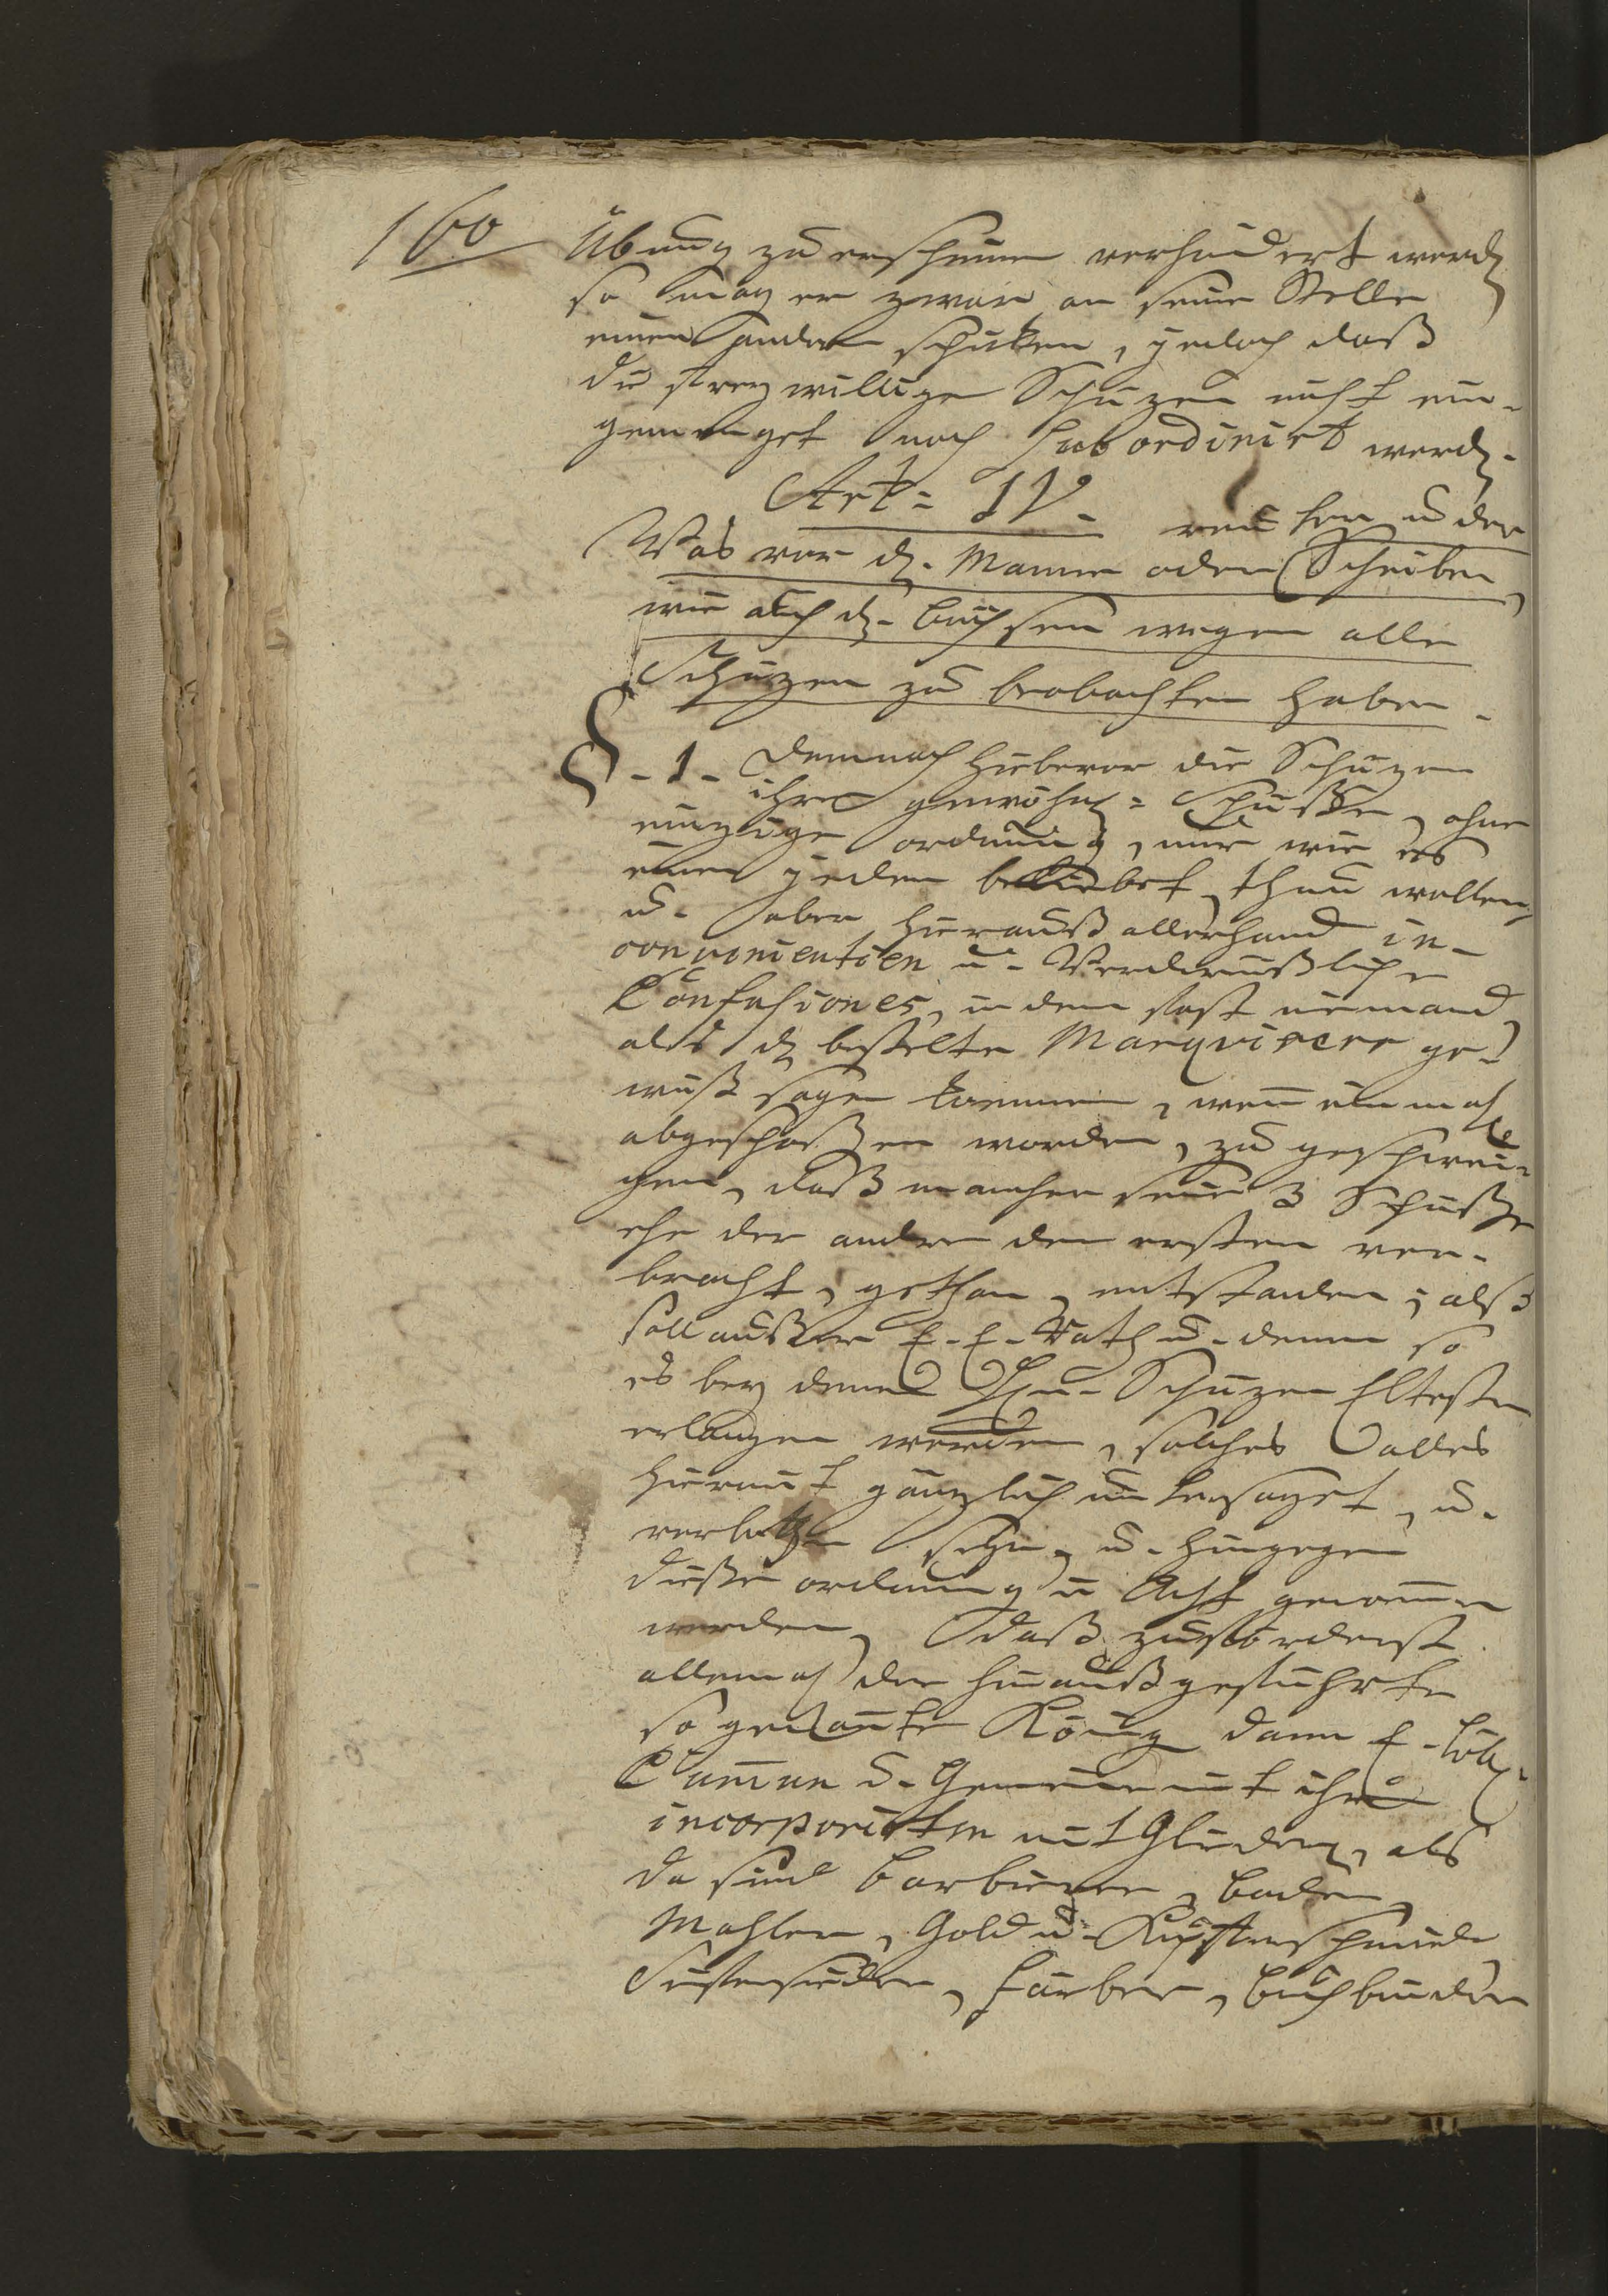 160
Übung zu erscheinen verhindert werdn
so mag er zwar an seine Stelle
einen andern schicken, jedoch daß
die freywillige Schüzen nicht ein-
gemenget noch subordinirt werdn.
Art: IV.
Was vor dn. Mauer oder Scheiben
wie auch dn. büchsen wegen alle
Schüzen zu beobachten haben.
§. 1. Demnach hiebevor die Schüzen
ihre gewöhnl: Schüsse, ohne
einzige ordnung, nur wie es
einen jeden beliebet, thun wollen,
u. aber hierauß allerhand in-
convenientien u. Verdrüßliche
Confusiones, in dem fast niemand
als dn bestelte Marqvirer ge-
wiß sagen können, wenn einmahl
abgeschossen worden, zu geschwei-
gen, daß mancher seine 3 Schüsse
ehe der andere den ersten ver-
bracht, gethan, entstanden; alß
soll ausser E. E. Rath u. denen so
es bey denen Schüzen Eltesten
erlangen werden, solches alles
hiermit gänzlich untersaget, u.
verbothen seyn, u. hingegen
diese ordnung in Acht genommen
werden, daß zuförderst
allemahl der hinaußgeführte
so genante König dann E. Löbl.
Commun u. Gemeine mit ihren
incorporirten mit Gliedern, als
da sind Barbierer, Bader,
Mahler, Gold u. Kupferschmiede
Seifensieder, Färber, Buchbinder